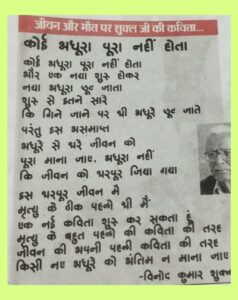 जीवन और मौत पर शुक्ल जी की कविता...
कोई अधूरा पूरा नहीं होता
कोई अधूरा पूरा नहीं होता
और एक नया शुरू होकर
नया अधूरा छूट जाता
शुरू से इतने सारे
कि गिने जाने पर भी अधूरे छूट जाते
परंतु इस असमाप्त
अधूरे से भरे जीवन को
पूरा माना जाए, अधूरा नहीं
कि जीवन को भरपूर जिया गया
इस भरपूर जीवन में
मृत्यु के ठीक पहले भी मैं
एक नई कविता शुरू कर सकता हूं
मृत्यु के बहुत पहले की कविता की तरह
जीवन की अपनी पहली कविता की तरह
किसी नए अधूरे को अंतिम न माना जाए
-विनोद कुमार शुक्ल